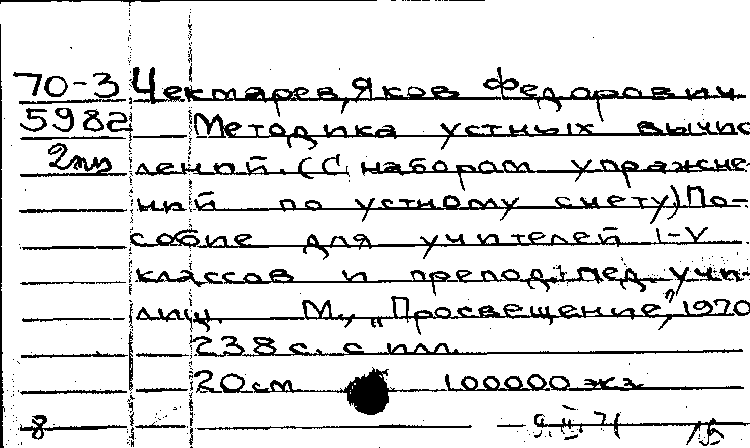 70-3 Чекмарев, Яков Федорович
5982 Методика устных вычис
2 экз лений. (С набором упражне
ний по устному счету) По-
собие для учителей I-V
классов и препод. пед. учи-
лищ. М., „Просвещение", 1970
238 с. с илл.
20 см 100000 экз
8 9.II.71 15